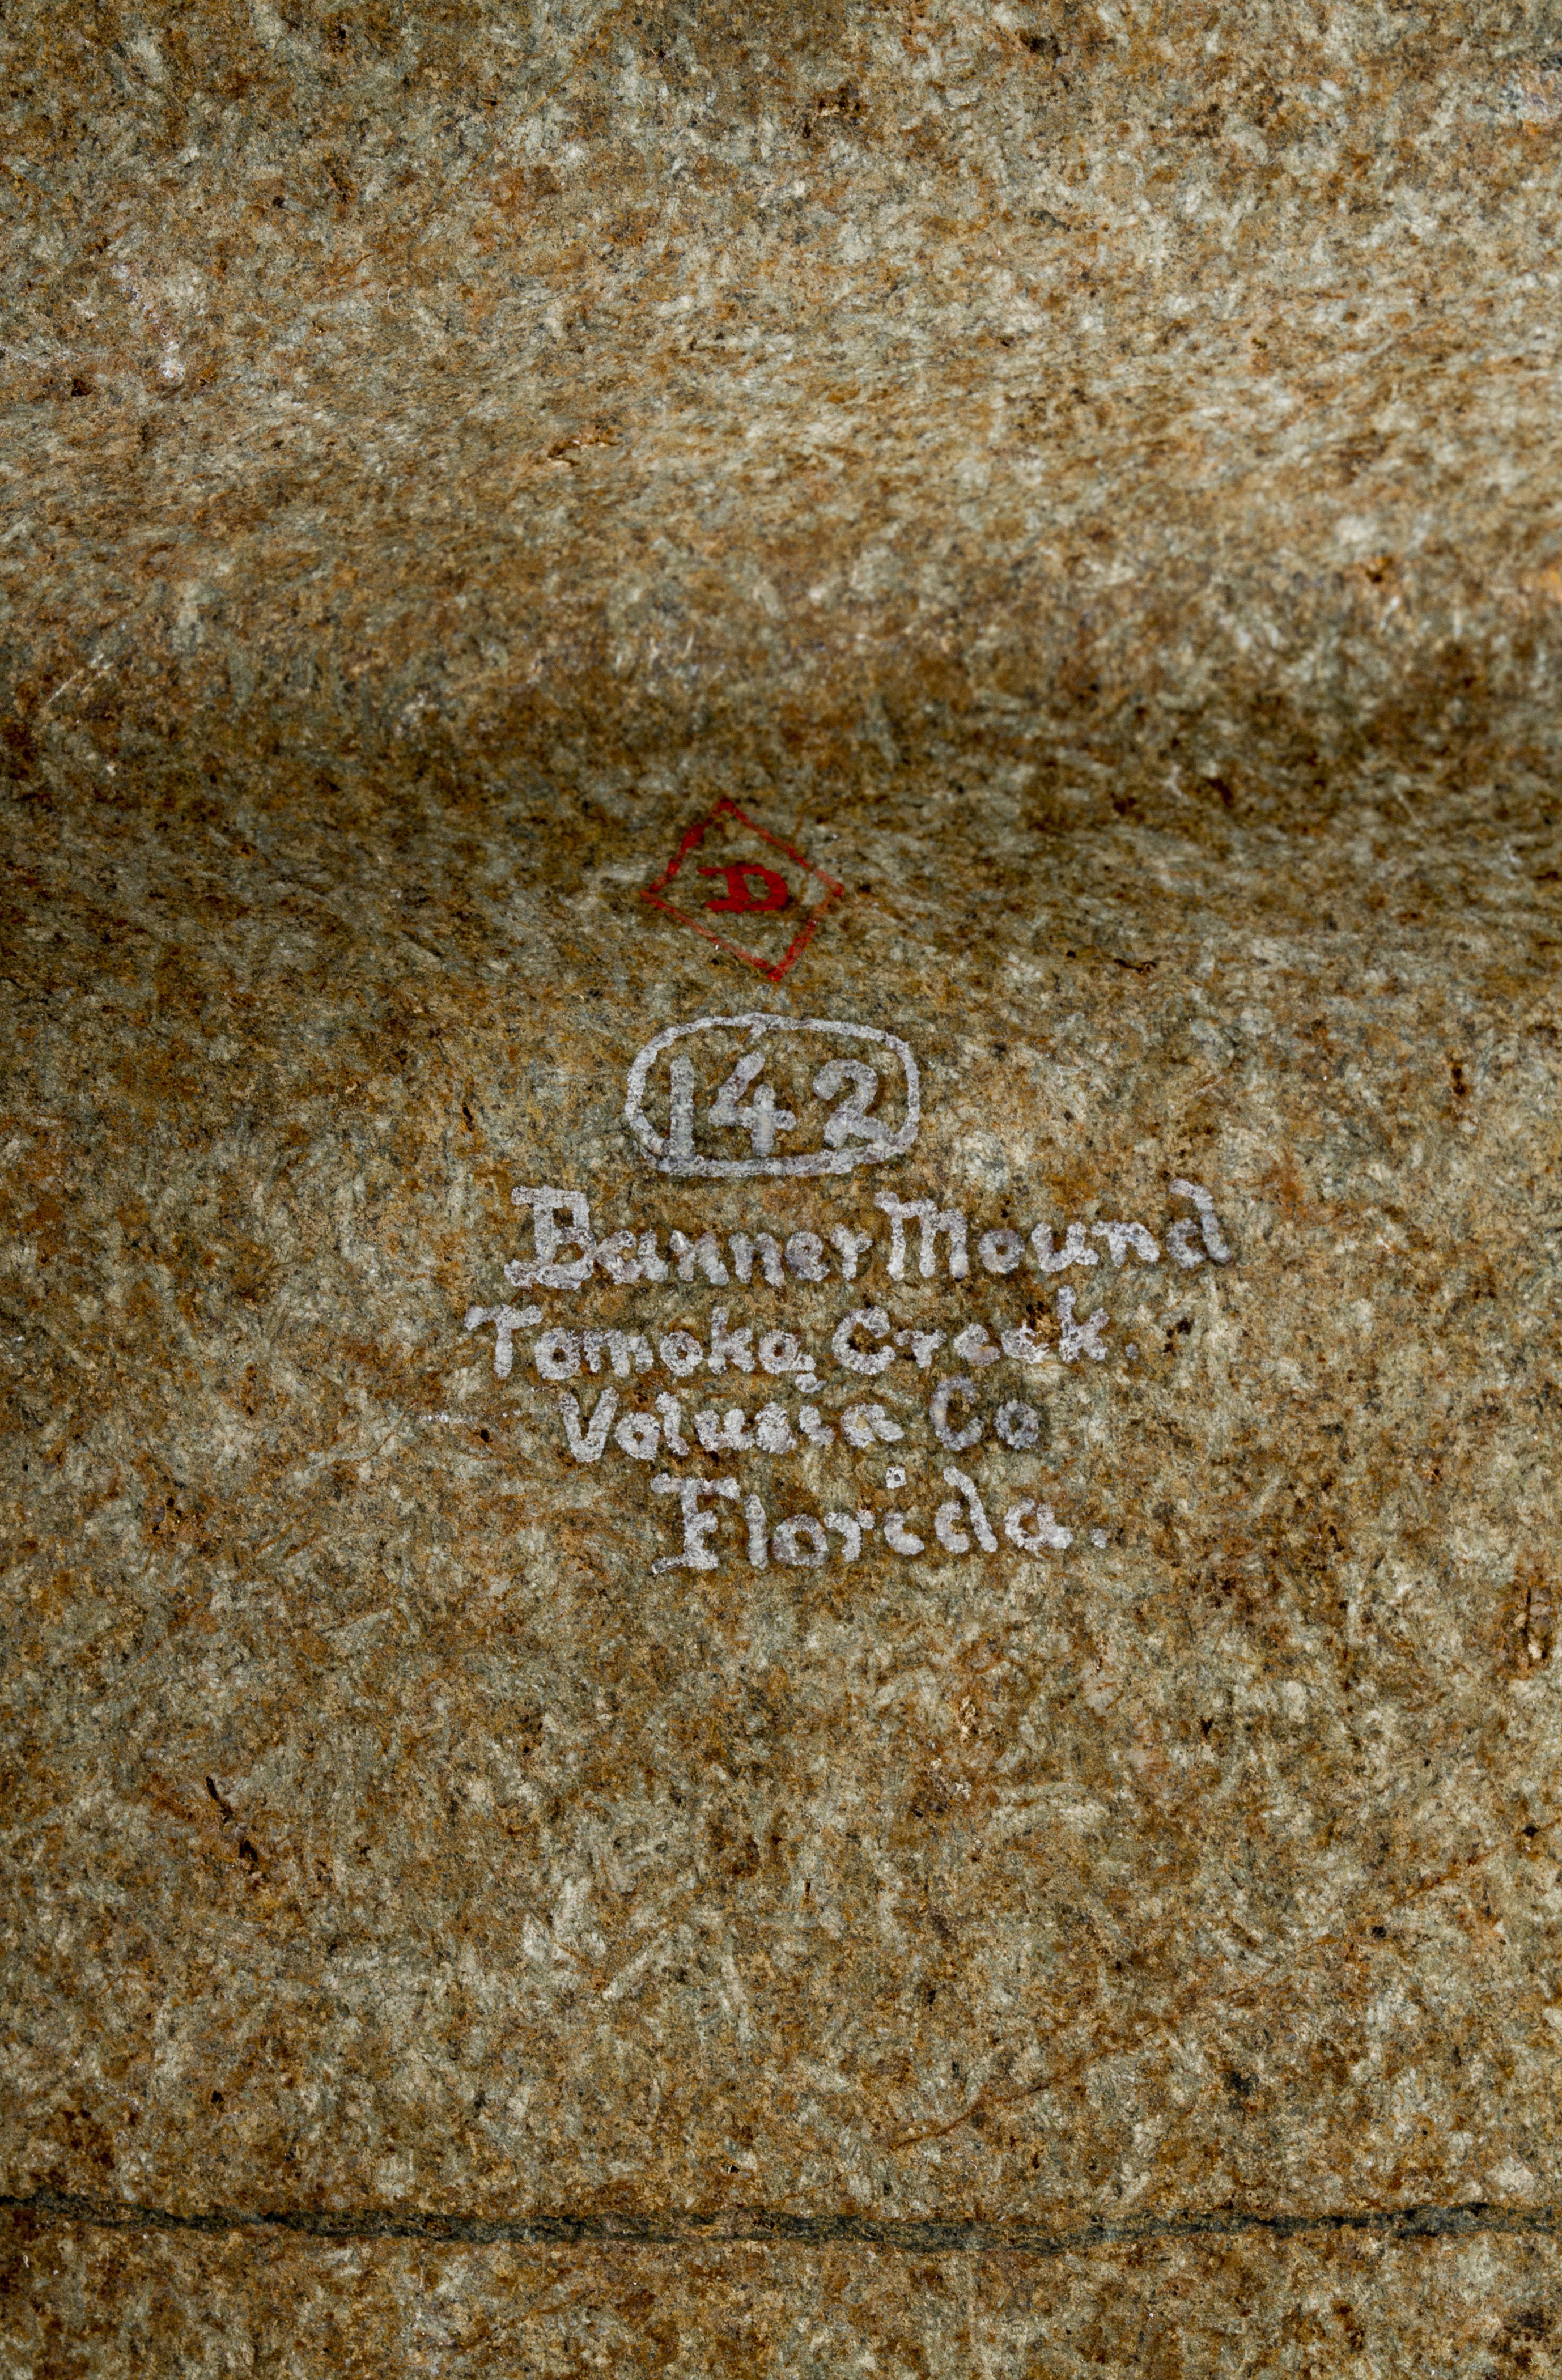 D
142
Banner Mound
Tomoka Creek.
Volusia Co
Florida.